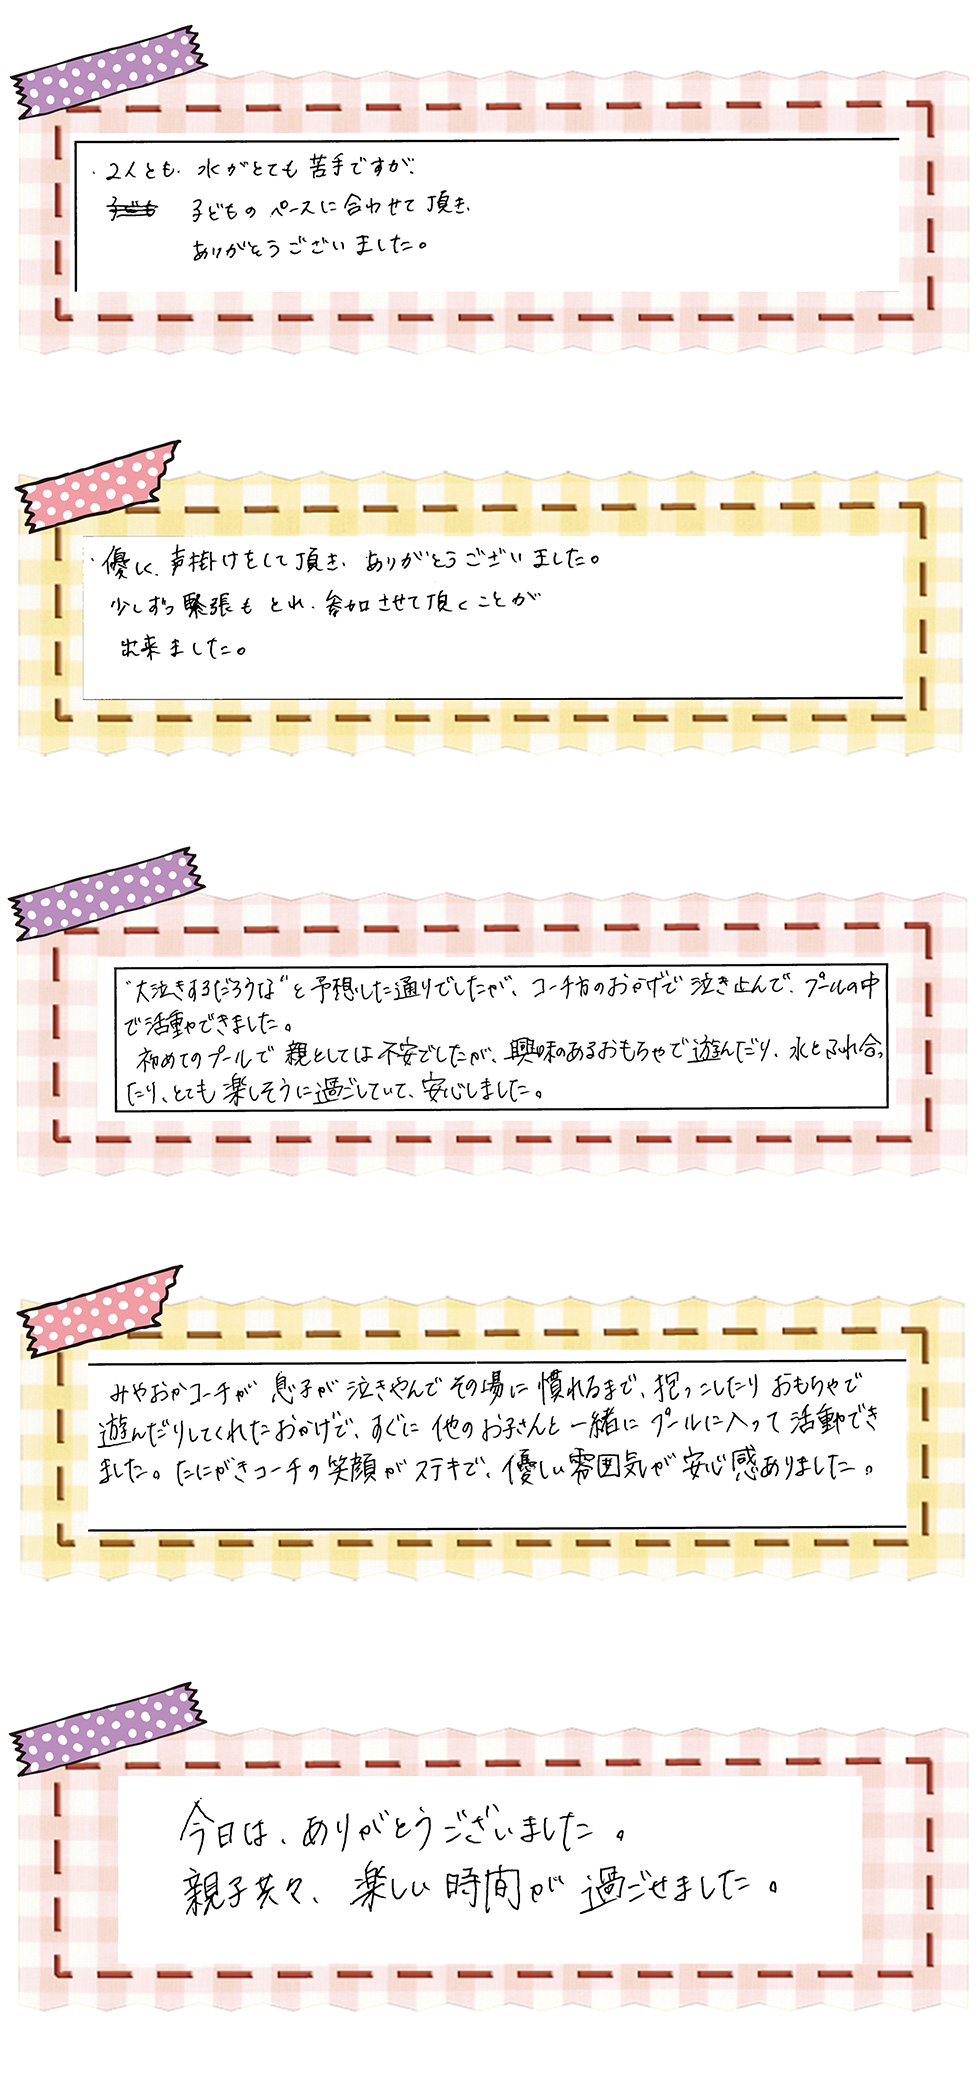 ・2人とも、水がとても苦手ですが、
子ども 子どものペースに合わせて頂き、
ありがとうございました。
・優しく、声掛けをして頂き、ありがとうございました。
少しずつ緊張もとれ、参加させて頂くことが
出来ました。
"大泣きするだろうな"と予想した通りでしたが、コーチ方のおかげで泣き止んで、プールの中
で活動できました。
初めてのプールで親としては不安でしたが、興味のあるおもちゃで遊んだり、水とふれ合っ
たり、とても楽しそうに過ごしていて、安心しました。
みやおかコーチが息子が泣きやんでその場に慣れるまで、抱っこしたりおもちゃで
遊んだりしてくれたおかげで、すぐに他のお子さんと一緒にプールに入って活動でき
ました。たにがきコーチの笑顔がステキで、優しい雰囲気が安心感ありました。
今日は、ありがとうございました。
親子共々、楽しい時間が過ごせました。